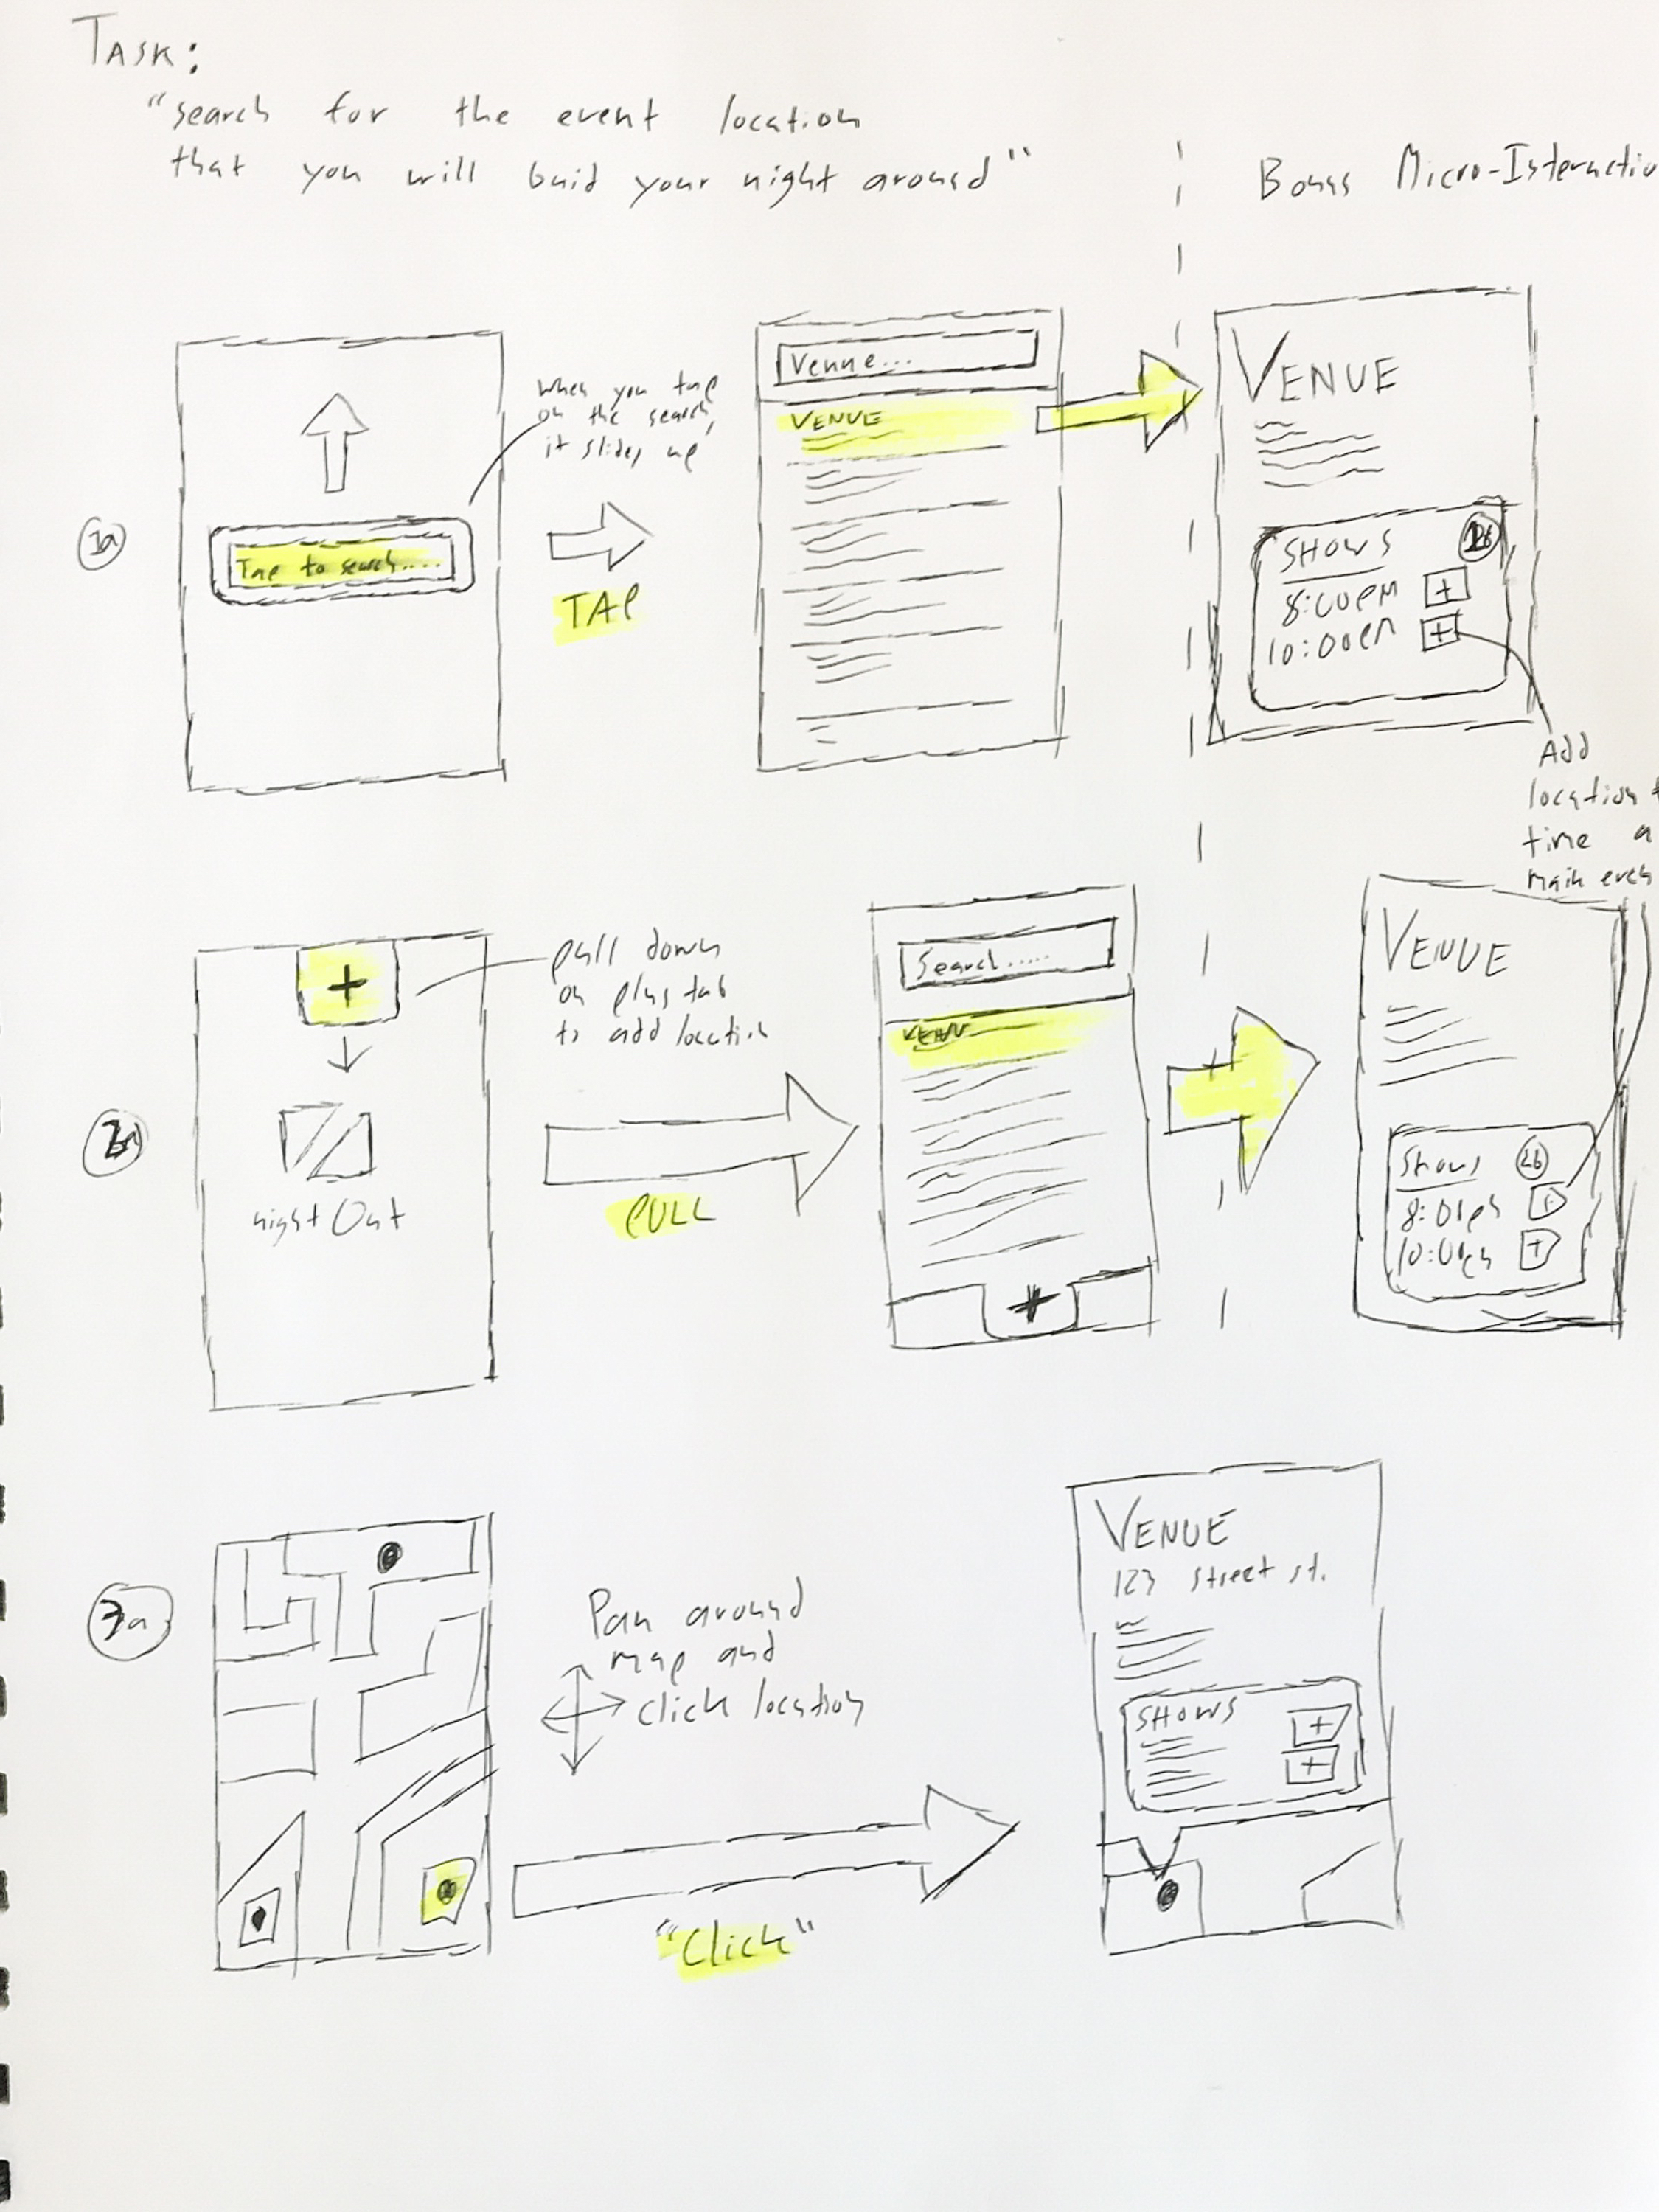 TASK:
"search for the event location
that you will buid your night around"
Bonus Micro-Interactio
1a
when you tap
on the search,
it slides up
Tap to search....
TAP
Venue...
VENUE
VENUE
SHOWS
1b
8:00PM +
10:00PM +
Add
location
time a
main even
2a
+
pull down
on plus tab
to add location
night Out
PULL
Search.....
VENU
+
VENUE
Shows 2b
8:00pm +
10:00pm +
3a
Pan around
map and
click location
"Click"
VENUE
123 Street st.
SHOWS
+
+